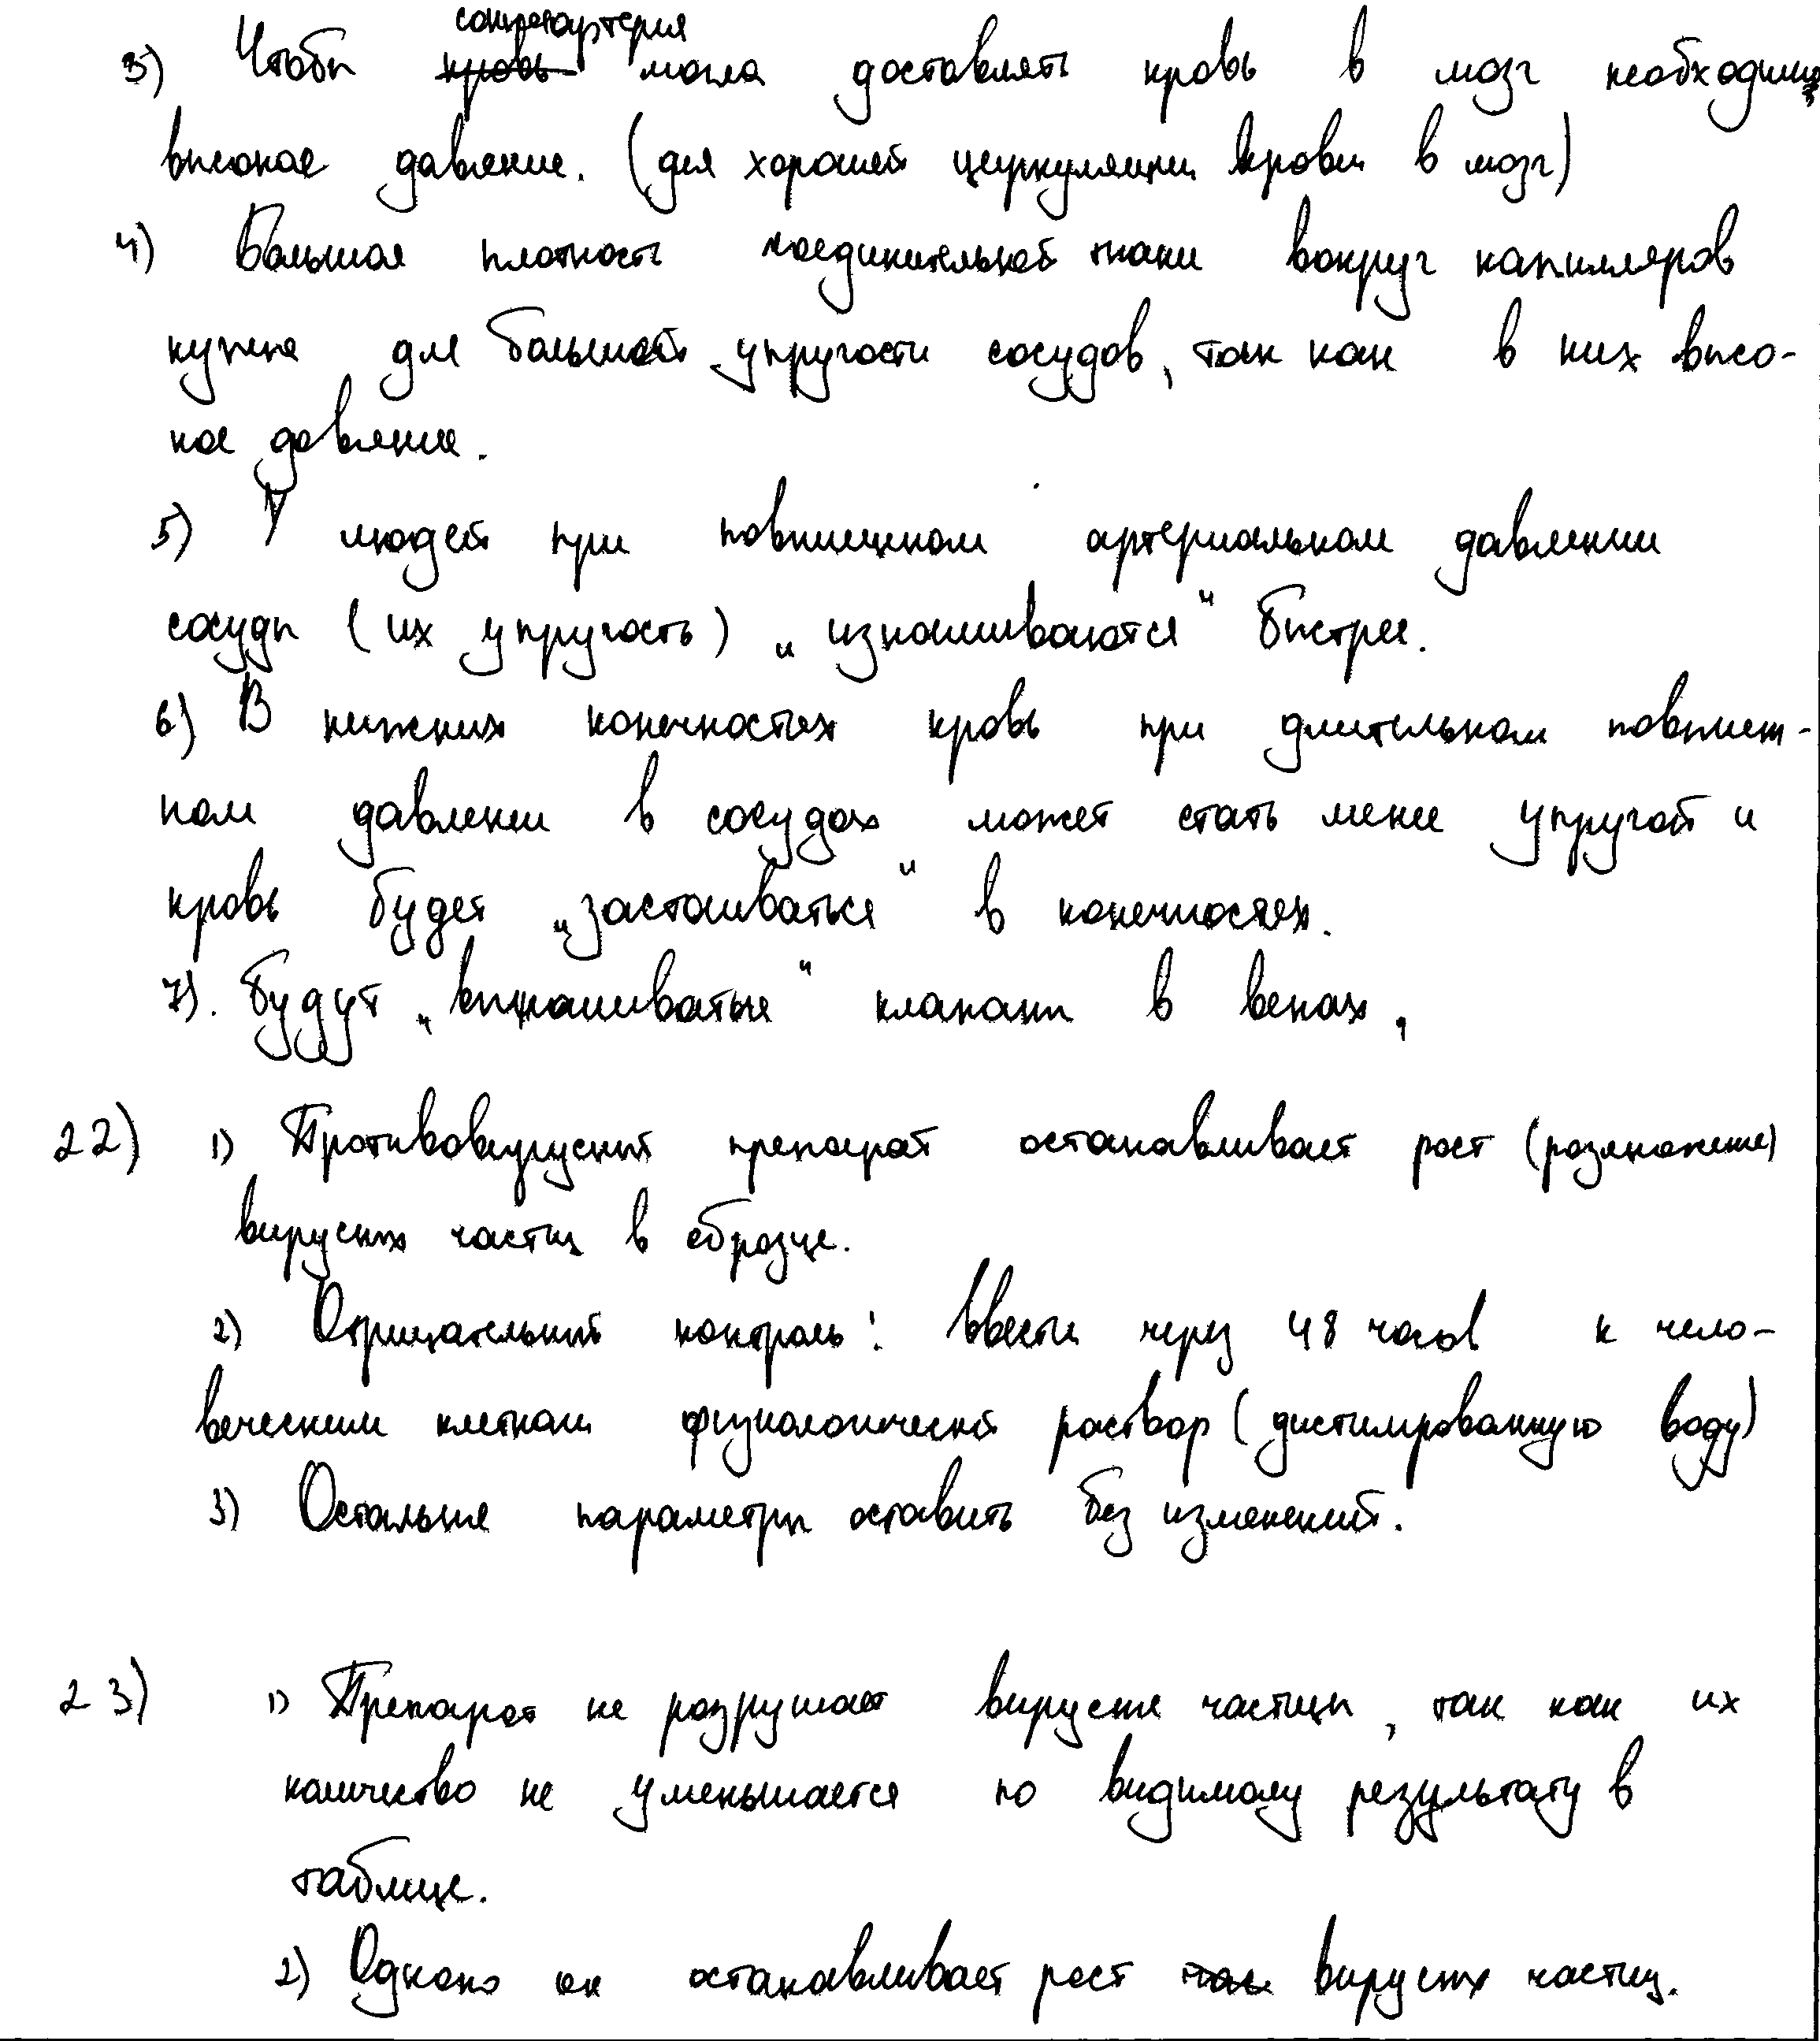 сонная артерия
3) Чтобы кровь могла доставлять кровь в мозг необходимо
высокое давление. (для хорошей циркуляции крови в мозг)
4) Большая плотность соединительной ткани вокруг капилляров
нужна для большей упругости сосудов, так как в них высо-
кое давление.
5) У людей при повышенном артериальном давлении
сосуды (их упругость) „изнашиваются“ быстрее.
6) В нижних конечностях кровь при длительном повышен-
ном давлении в сосудах может стать менее упругой и
кровь будет „застаиваться“ в конечностях.
7). Будут „выпашиваться“ клапаны в венах,
22) 1) Противовирусный препарат останавливает рост (размножение)
вирусных частиц в образце.
2) Отрицательный контроль: Ввести через 48 часов к чело-
веческим клеткам физиологический раствор (дистилированную воду)
3) Остальные параметры оставить без изменений.
23) 1) Препарат не разрушает вирусные частицы, так как их
количество не уменьшается по видимому результату в
таблице.
2) Однако он останавливает рост вирусных частиц.